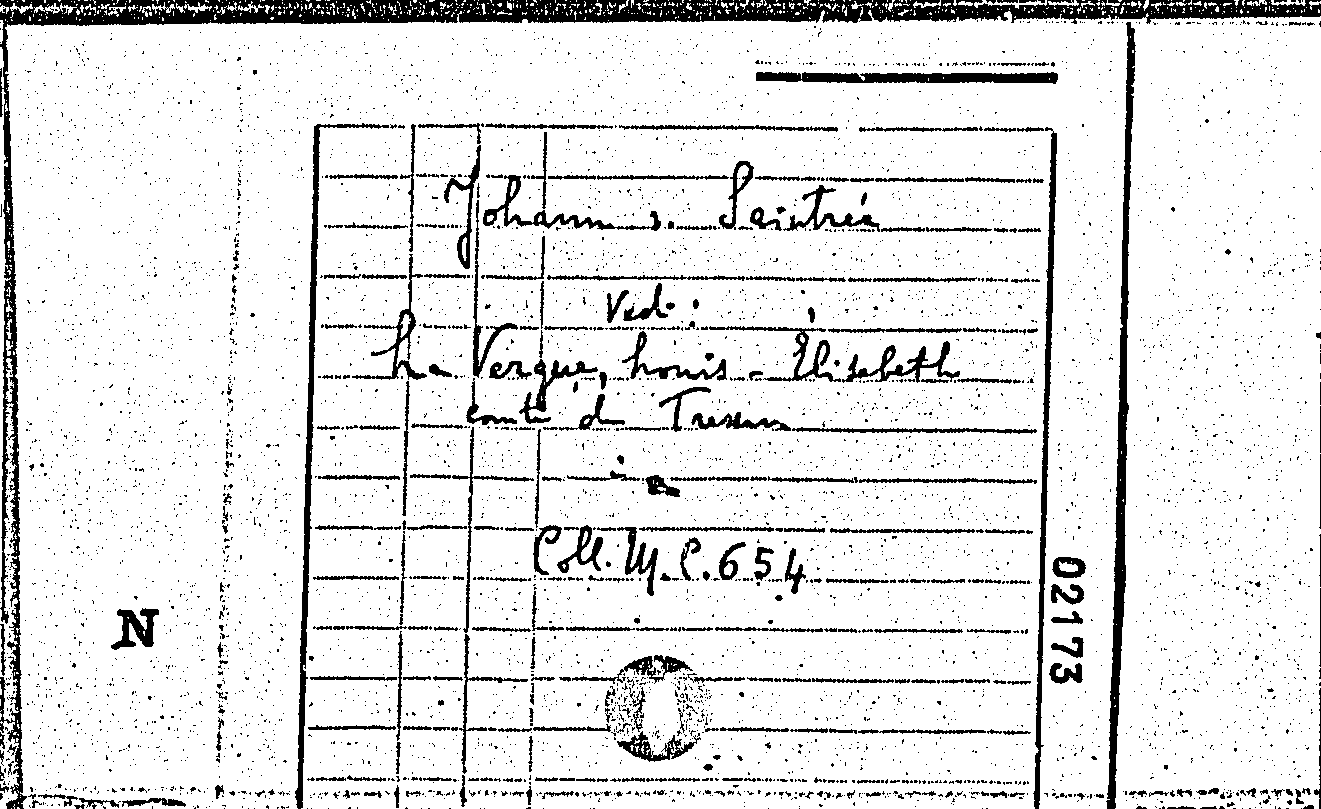 Johann s. Saintréé
Ved. :
La Vergne, Louis - Elisabeth
comte de Tressan
Coll. M. C. 654
N
02173